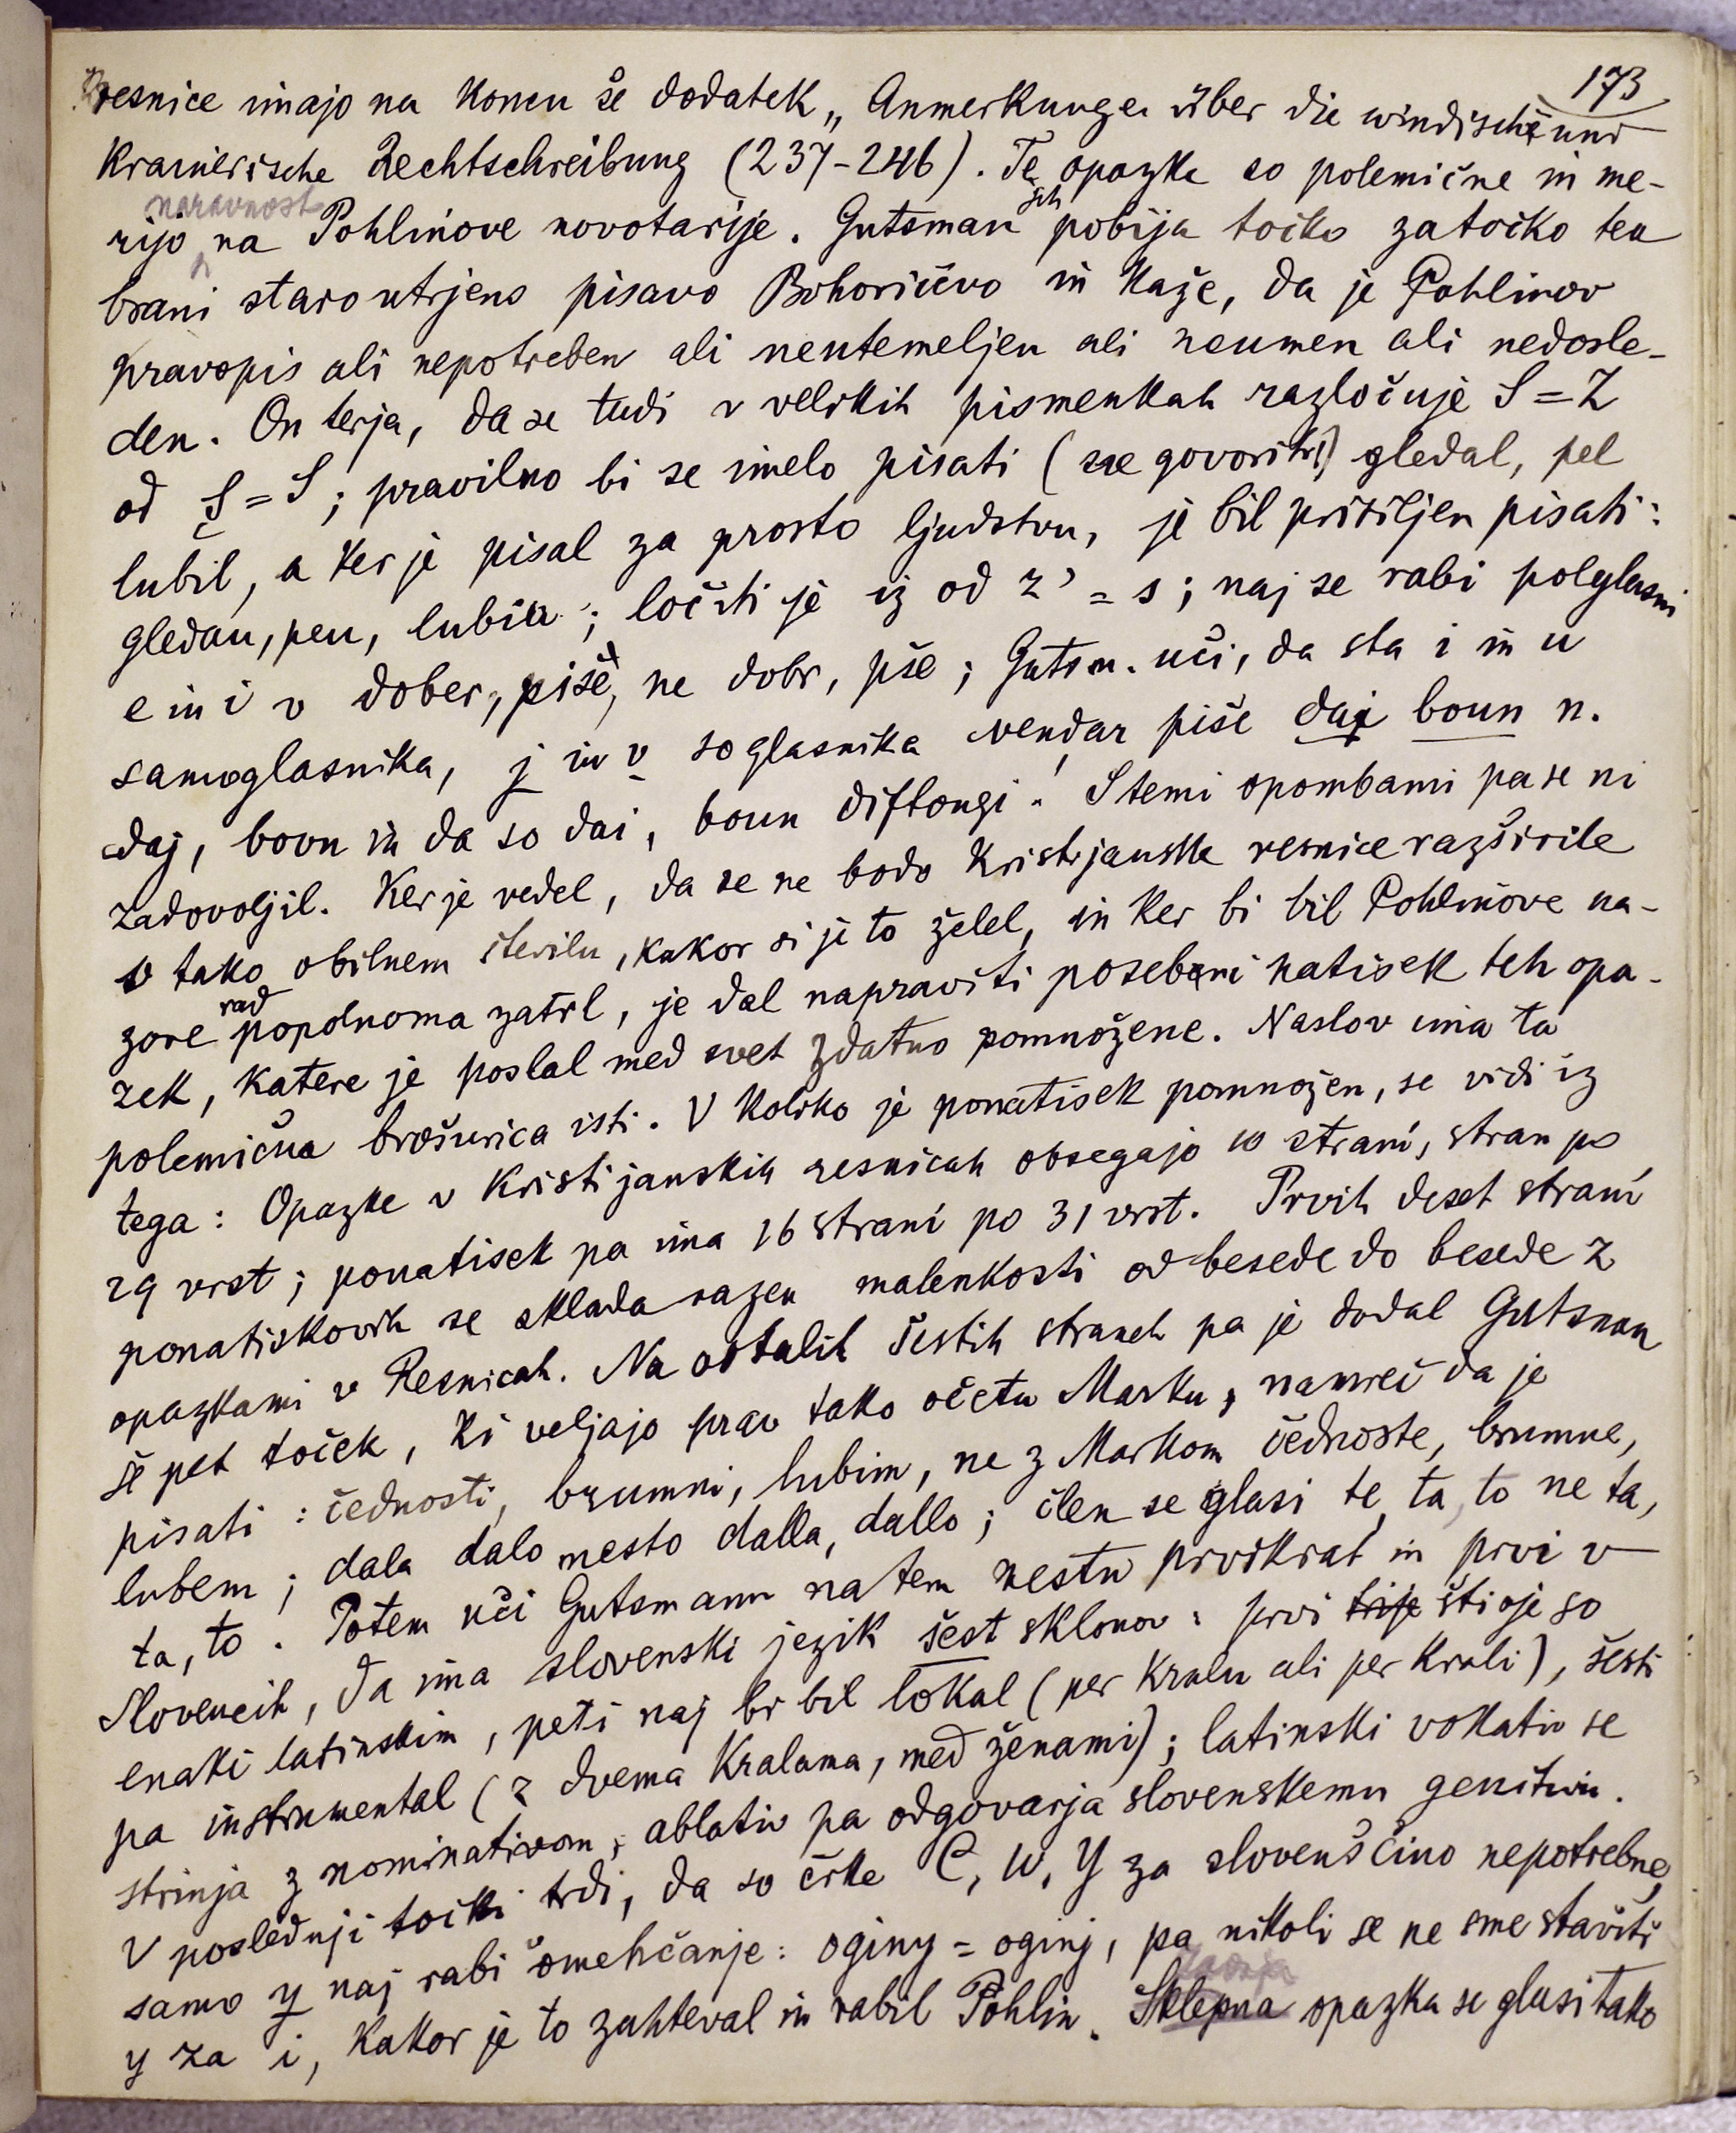 173
resnice imajo na koncu še dodatek „Anmerkungen über die windische und
Krainerische Rechtschreibung (237-246). Te opazke so polemične in me-
rijo naravnost na Pohlinove novotarije. Gutsman jih pobija točko za točko ter
brani staro utrjeno pisavo Bohoričevo in kaže, da je Pohlinov
pravopis ali nepotreben ali neutemeljen ali neumen ali nedosle-
den. On terja, da se tudi v velikih pismenkah razločuje S = Z
od Ş = S; pravilno bi se imelo pisati (ne govoriti!) gledal, pel
lubil, a ker je pisal za prosto ljudstvu, je bil prisiljen pisati:
gledau, peu, lubiu; ločiti je iz od z' = s; naj se rabi polglasni
e in i v dober, piše, ne dobr, pše; Gutsm. uči, da sta i in u
samoglasnika, j in v soglasnika vendar piše dai boun n.
daj, bovn in da so dai, boun diftongi! S temi opombami pa se ni
zadovoljil. Ker je vedel, da se ne bodo Kristijanske resnice razširile
v tako obilnem številu, kakor si je to želel, in ker bi bil Pohlinove na-
zore rad popolnoma zatrl, je dal napraviti posebni natisek teh opa-
zek, katere je poslal med svet zdatno pomnožene. Naslov ima ta
polemična brošurica isti. V koliko je ponatisek pomnožen, se vidi iz
tega: Opazke v Kristijanskih resnicah obsegajo 10 strani, stran po
29 vrst; ponatisek pa ima 16 strani po 31 vrst. Prvih deset strani
ponatiskovih se sklada razen malenkosti od besede do besede z
opazkami v Resnicah. Na ostalih šestih straneh pa je dodal Gutsman
še pet toček, ki veljajo prav tako očetu Marku, namreč da je
pisati: čednosti, brumni, lubim, ne z Markom čednoste, brumne,
lubem; dala dalo mesto dalla, dallo; člen se glasi te, ta, to ne ta,
ta, to. Potem uči Gutsmann na tem mestu prvikrat in prvi v
Slovencih, da ima slovenski jezik šest sklonov: prvi trije štirje so
enaki latinskim, peti naj bi bil lokal (per Kralu ali per Krali), šesti
pa instrumental (z dvema Kralama, med ženami); latinski vokativ se
strinja z nominativom, ablativ pa odgovarja slovenskemu genitivu.
V poslednji točki trdi, da so črke C, W, Y za slovenščino nepotrebne,
samo y naj rabi omehčanje: oginy = oginj, pa nikoli se ne sme staviti
y za i, kakor je to zahteval in rabil Pohlin. Sklepna opazka se glasi tako